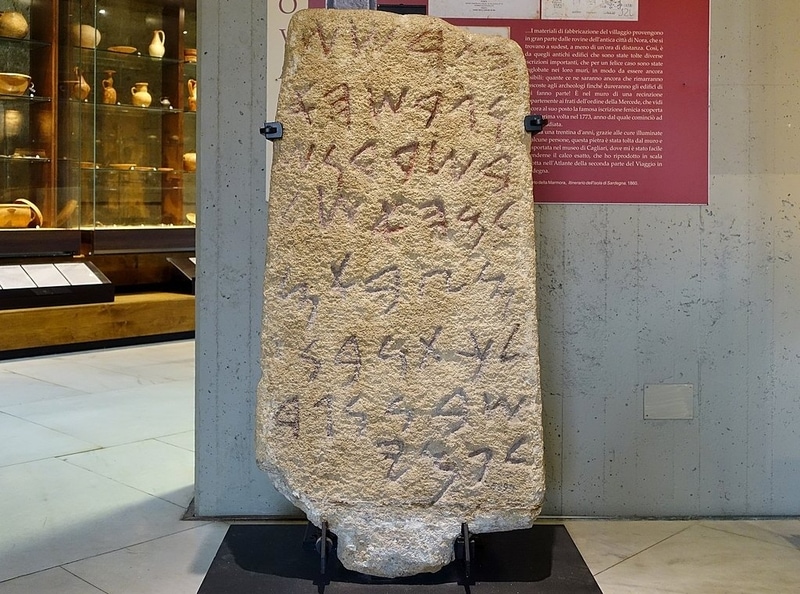 𐤁𐤕𐤓𐤔𐤔
𐤅𐤂𐤓𐤔𐤄𐤀
𐤁𐤔𐤓𐤃𐤍𐤔
𐤋𐤌𐤄𐤀𐤔𐤋
𐤌𐤑𐤁𐤀𐤌
𐤋𐤊𐤕𐤍𐤁𐤍
𐤔𐤁𐤍𐤍𐤂𐤃
𐤋𐤐𐤌𐤉
...I materiali di fabbricazione del villaggio provengono
in gran parte dalle rovine dell'antica città di Nora, che si
trovano a sudest, a meno di un'ora di distanza. Così, è
da quegli antichi edifici che sono state tolte diverse
iscrizioni importanti, che per un felice caso sono state
nei loro muri, in modo da essere ancora
quante ce ne saranno ancora che rimarranno
agli archeologi finché dureranno gli edifici di
fanno parte! È nel muro di una recinzione
ai frati dell'ordine della Mercede, che vidi
al suo posto la famosa iscrizione fenicia scoperta
volta nel 1773, anno dal quale cominciò ad
una trentina d'anni, grazie alle cure illuminate
persone, questa pietra è stata tolta dal muro e
nel museo di Cagliari, dove mi è stato facile
il calco esatto, che ho riprodotto in scala
nell'Atlante della seconda parte del Viaggio in
della Marmora, Itinerario dell'isola di Sardegna. 1860.